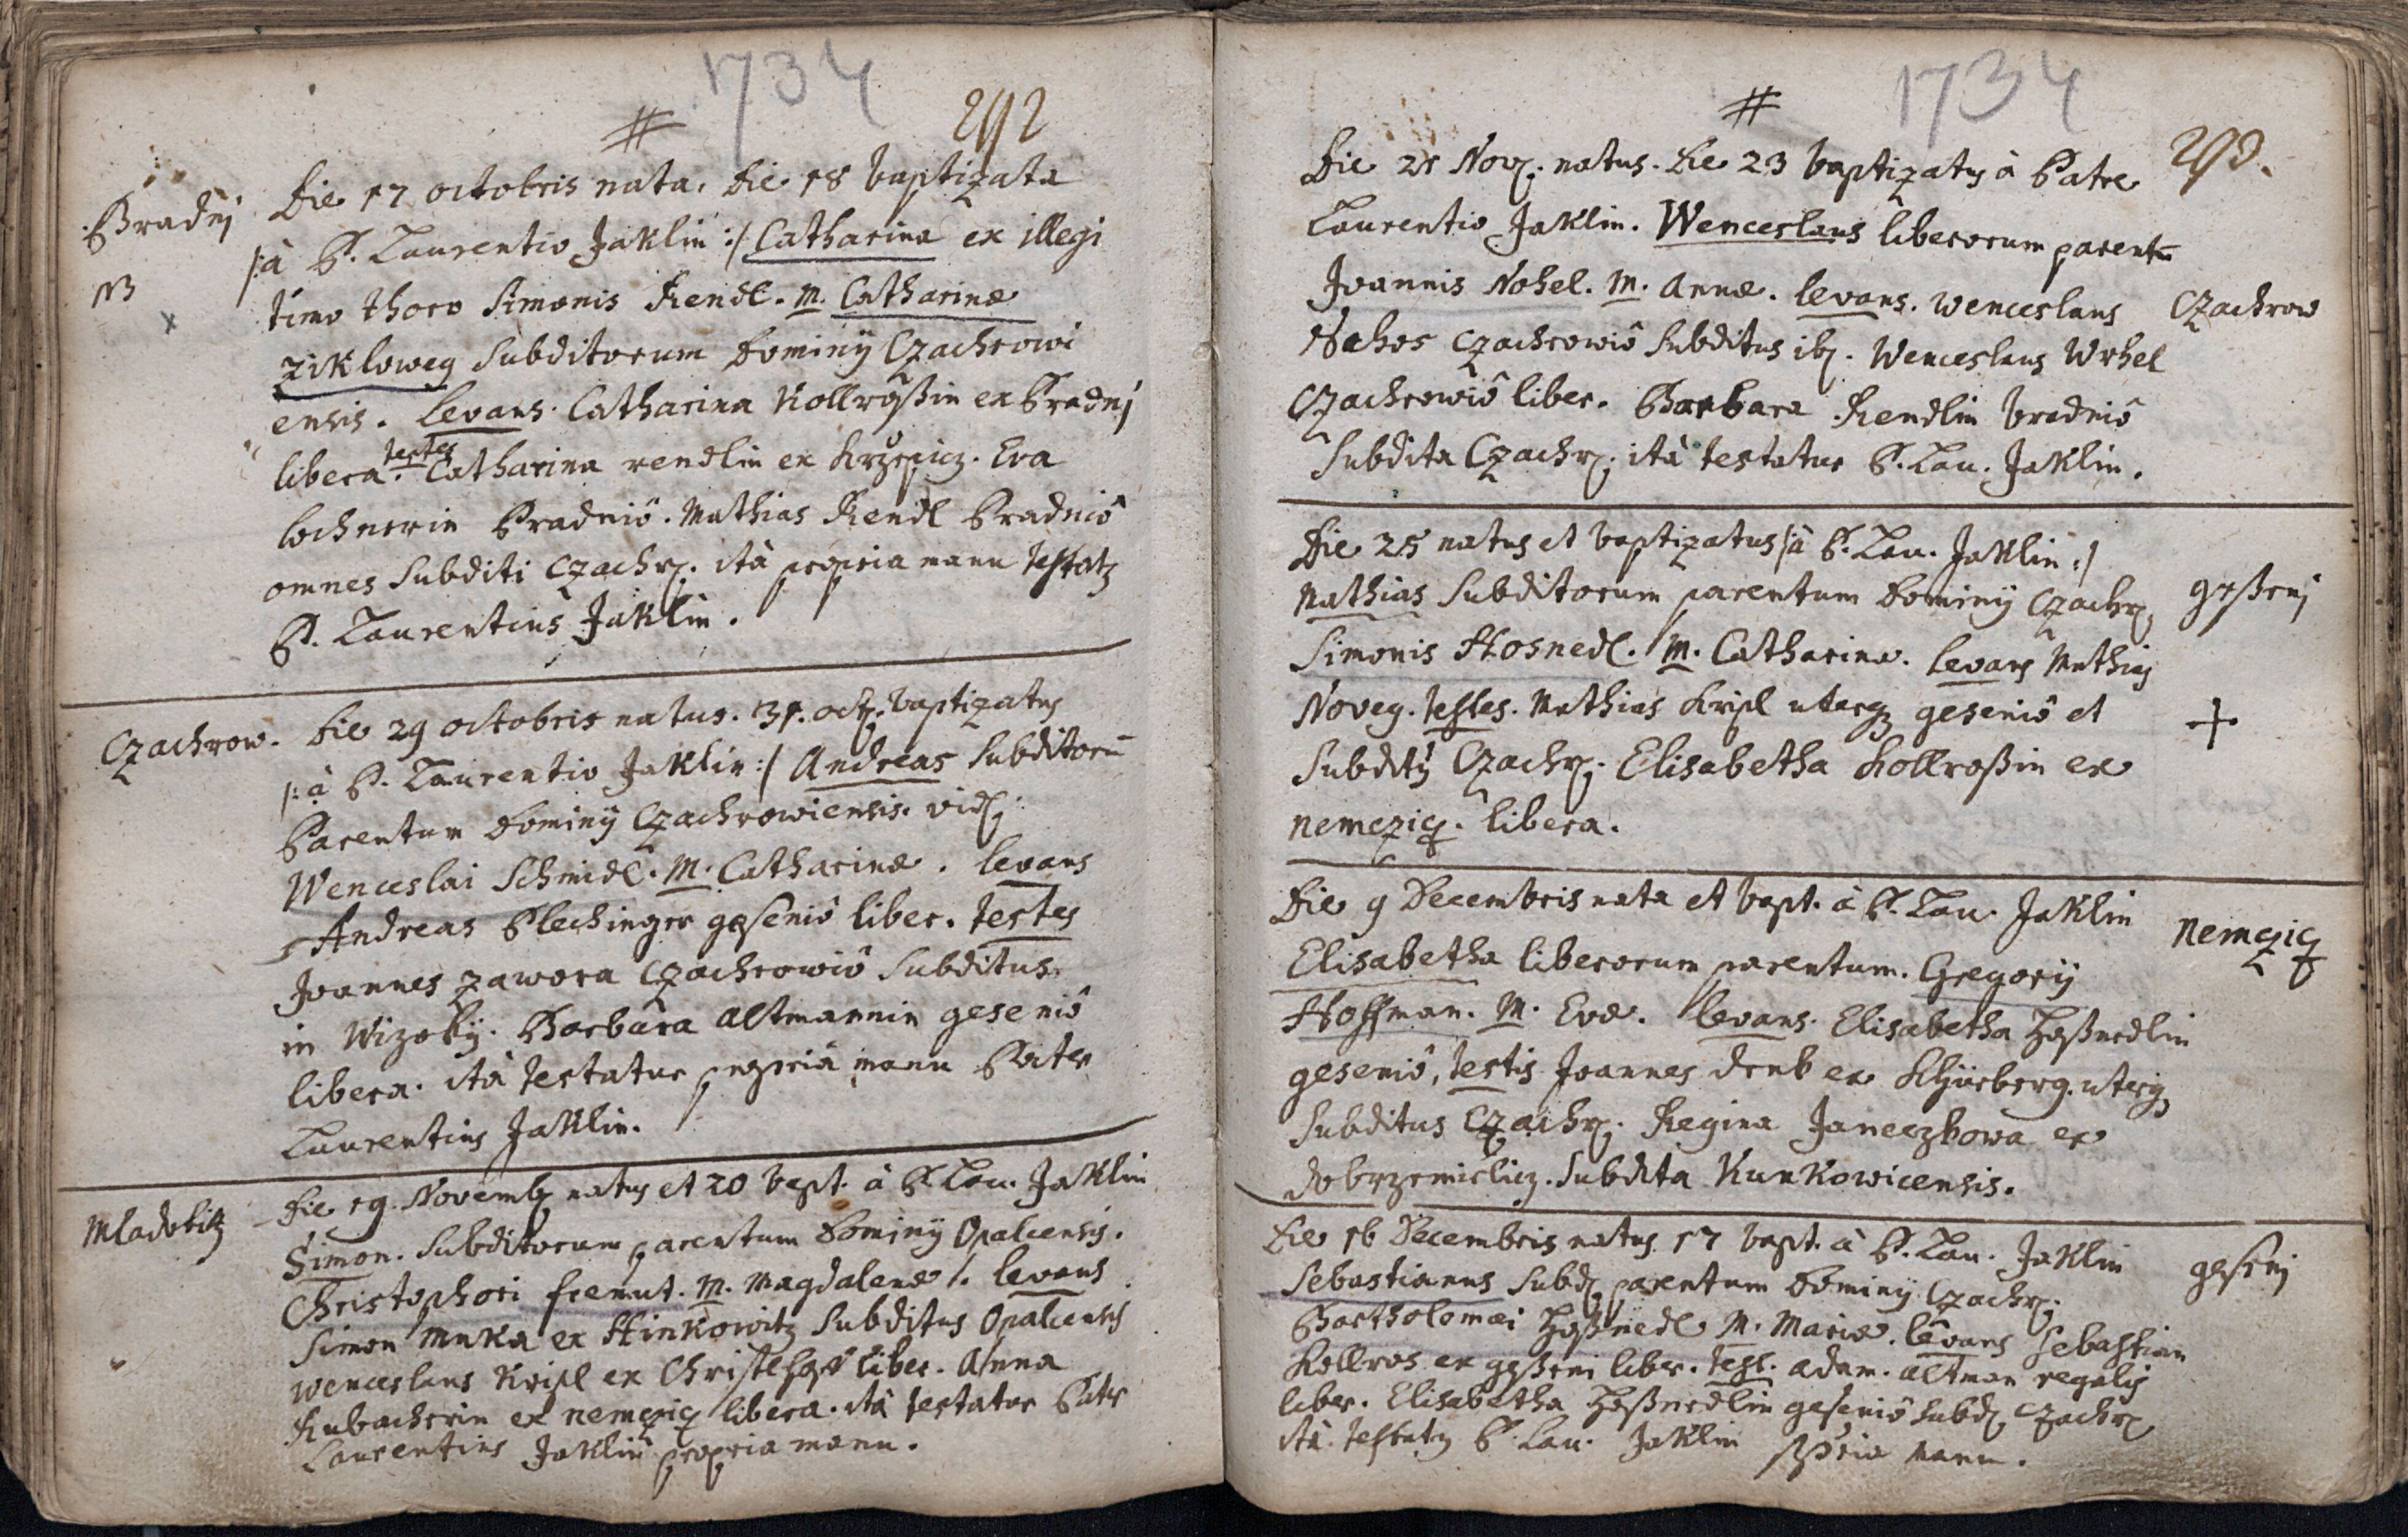 1734
#
292
Bradnj
NB
x
Die 17 octobris nata. Die 18 baptizata
/:à P. Laurentio Jaklin :/ Catharina ex illegi
timo thoro Simonis Rendl. M. Catharinæ
zikloweg Subditorum Dominÿ Czachrowi
ensis. Levans. Catharina Kollroßin ex Bradnj
libera. testes Catharina rendlin ex Krzepicz. Eva
lochnerin Bradniô. Mathias Rendl Bradniô
omnes Subditi Czachr. ità propria manu testatz
P. Laurentius Jaklin.
Czachrow.
Die 29 octobris natus. 31. oct. baptizatus
/:à P. Laurentio Jaklin :/ Andreas Subditorū
Parentum Dominÿ Czachrowiensis. vid.
Wenceslai Schmidl. M. Catharinæ. levans
Andreas Plechinger geseniô liber. testes
Joannes zawora Czachrowiô Subditus.
in Wizoky. Barbara altmannin geseniô
libera. ità testatur propriâ manu Pater
Laurentius Jaklin.
Mladotitz
Die 19. Novemb. natus et 20 bapt. à P. Lau. Jaklin
Simon. Subditorum parentum Dominÿ Opalcensis.
Christophori fremut. M. Magdalenæ /. levans
Simon Muka ex Hinkowitz Subditus Opalcensis
wenceslaus Kripl ex liber. Anna
Rubacherin ex nemczicz libera. ità testatur Pater
Laurentius Jaklin propria manu.
1734
#
293.
Die 21 Nov. natus. Die 23 baptizatus à Patre
Laurentio Jaklin. Wenceslaus liberorum parentū
Joannis Nohel. M. Annæ. levans. wenceslaus
Czachrow
Czachrowiô Subditus ib. Wenceslaus Wrhel
Czachrowiô liber. Barbara Rendlin bradniô
Subdita Czachr. ità testatur P. Lau. Jaklin.
Die 25 natus et baptizatus /:à P. Lau. Jaklin :/
Mathias Subditorum parentum Dominÿ Czachr.
geßenj
Simonis Hosnedl. M. Catharinæ. levans Mathias
Noweg. testes. Mathias Kripl uterq geseniô et
+
Subditÿ Czachr. Elisabetha Kollroßin ex
nemczicz. libera.
Die 9 Decembris nata et bapt. à P. Lau. Jaklin
Nemczicz
Elisabetha liberorum parentum. Gregorÿ
Hoffman. M. Evæ. levans. Elisabetha Hoßnedlin
geseniô, testis Joannes drub ex uterq
Subditus Czachr. Regina Janeczkowa ex
dobrzemielicz. Subdita Kunkowicensis.
Die 16 Decembris natus 17 bapt. à P. Lau. Jaklin
gesenj
Sebastianus Subd. parentum Dominÿ Czachr.
Bartholomæi Hoßnedl M. Mariæ. levans Sebastian
Kollros ex geßeni liber. test. adam. altman regalis
liber. Elisabetha Hoßnedlin geseniô Subd. Czachr
ità testatz P. Lau. Jaklin ppria manu.